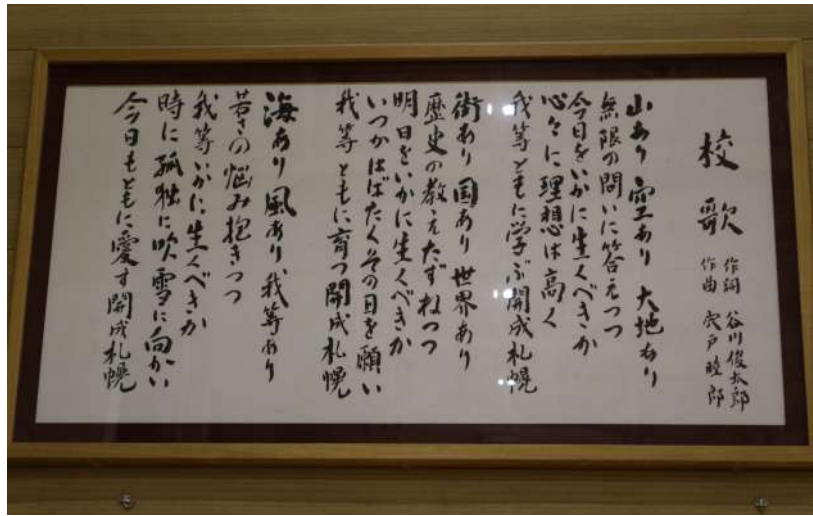 校歌
作詞 谷川俊太郎
作曲 宍戸睦郎
山あり 空あり 大地あり
無限の問いに答えつつ
今日をいかに生くべきか
心々に理想は高く
我等ともに学ぶ開成札幌
街あり 国あり 世界あり
歴史の教えたずねつつ
明日をいかに生くべきか
いつかはばたくその日を願い
我等ともに育つ開成札幌
海あり 風あり 我等あり
若さの悩み抱きつつ
我等いかに生くべきか
時に孤独に吹雪に向かい
今日もともに愛す開成札幌